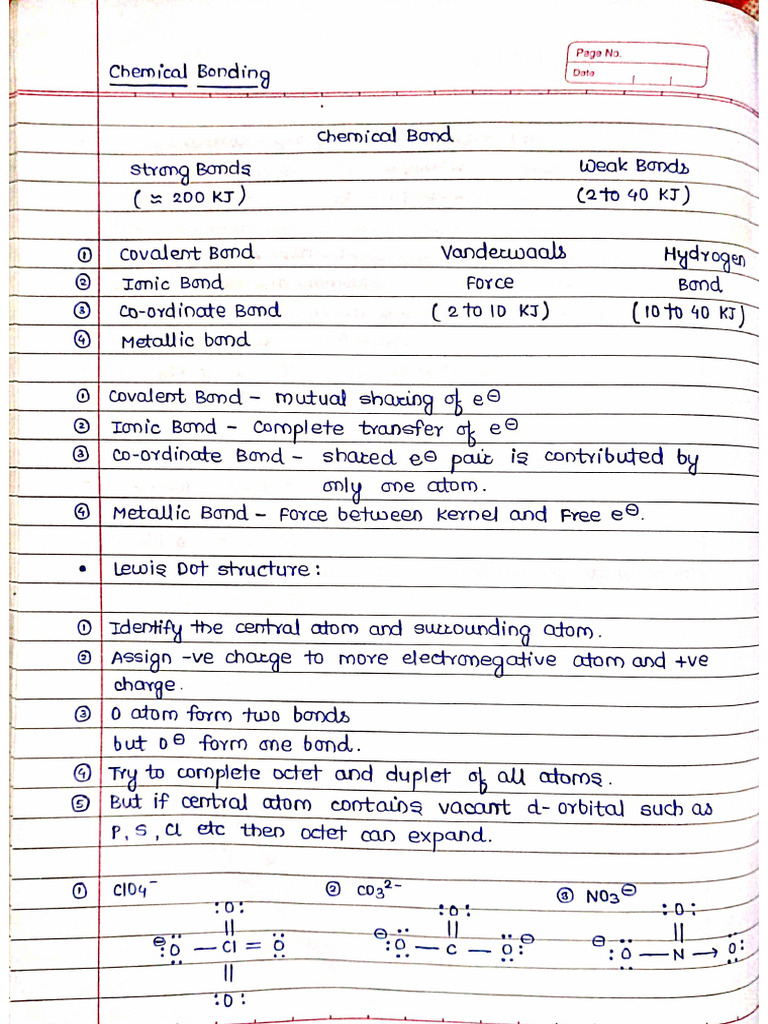 Page No.
Chemical Bonding
Date
Chemical Bond
Strong Bonds Weak Bonds
(≈ 200 KJ) (2 to 40 KJ)
① Covalent Bond Vanderwaals Hydrogen
② Ionic Bond Force Bond
③ Co-ordinate Bond (2 to 10 KJ) (10 to 40 KJ)
④ Metallic bond
① Covalent Bond - mutual sharing of e⊖
② Ionic Bond - Complete transfer of e⊖
③ Co-ordinate Bond - shared e⊖ pair is contributed by
only one atom.
④ Metallic Bond - Force between Kernel and Free e⊖.
• Lewis Dot structure:
① Identify the central atom and surrounding atom.
② Assign -ve charge to more electronegative atom and +ve
charge.
③ O atom form two bonds
but O⊖ form one bond.
④ Try to complete octet and duplet of all atoms.
⑤ But if central atom contains vacant d-orbital such as
P, S, Cl etc then octet can expand.
① ClO4⁻ ② CO3²⁻ ③ NO3⊖
:O: :O: :O:
|| || ||
⊖:O — Cl = O ⊖:O — C — O:⊖ ⊖:O — N → O:
||
:O: